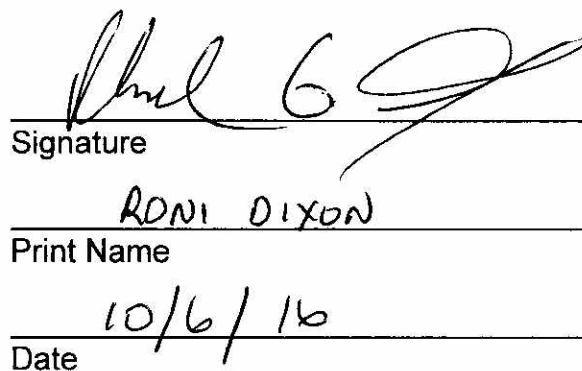 Signature
RONI DIXON
Print Name
10/6/16
Date